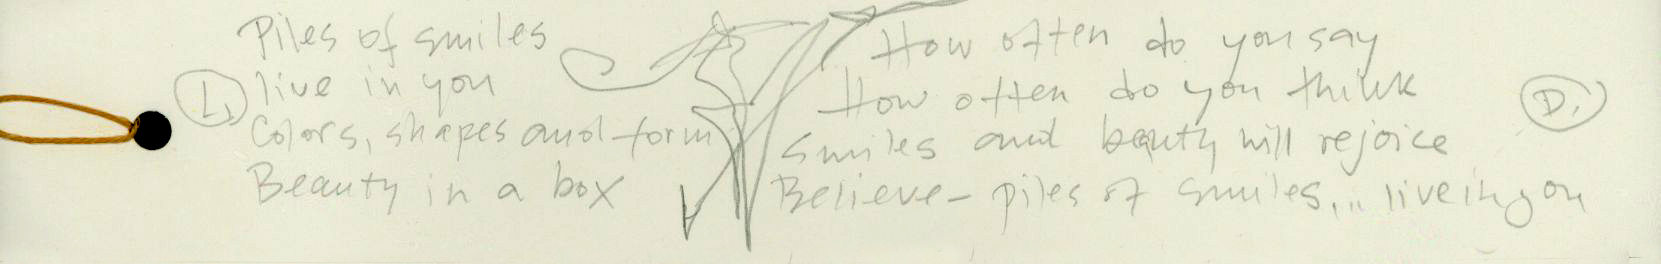 Piles of smiles
L.
live in you
Colors, shapes and form
Beauty in a box
How often do you say
How often do you think
D.
Smiles and beauty will rejoice
Believe - piles of smiles... live in you